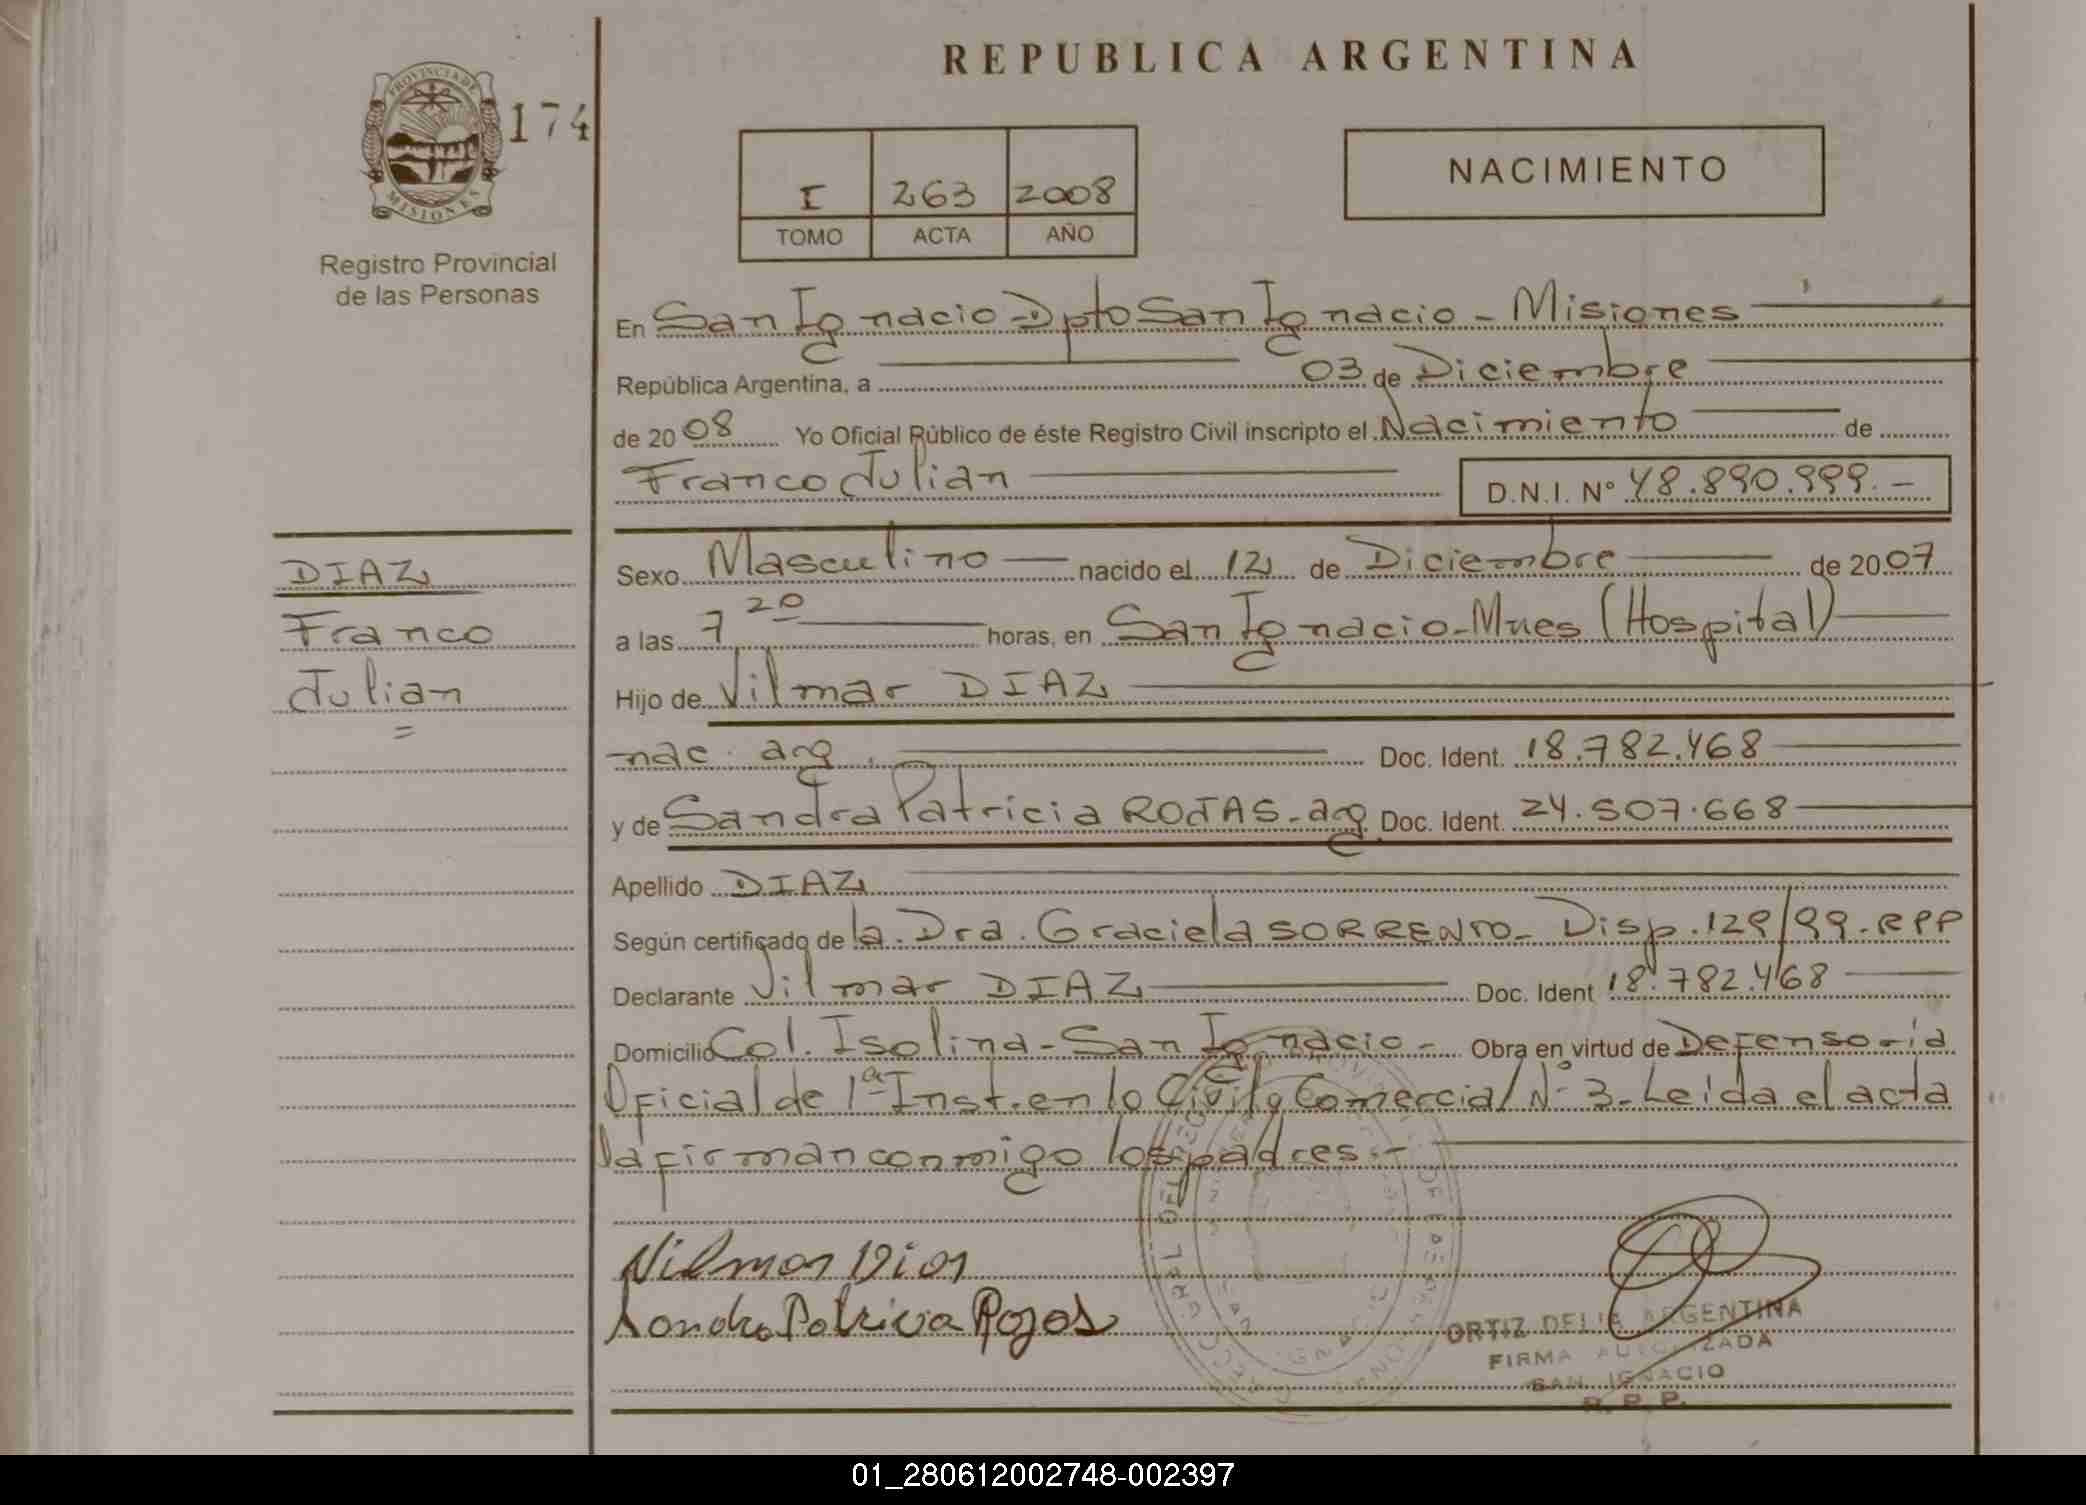 REPUBLICA ARGENTINA
PROVINCIA DE
MISIONES
174
Registro Provincial
de las Personas
I 263 2008
TOMO ACTA AÑO
NACIMIENTO
En San Ignacio - Dpto San Ignacio - Misiones
República Argentina, a 03 de Diciembre
de 2008 Yo Oficial Público de éste Registro Civil inscripto el Nacimiento de
Franco Julian D.N.I. Nº 48.890.999.-
DIAZ
Franco
Julian
=
Sexo Masculino nacido el 12 de Diciembre de 2007
a las 7 20 horas, en San Ignacio - Mnes (Hospital)
Hijo de Vilmar DIAZ
nac. arg. Doc. Ident. 18.782.468
y de Sandra Patricia ROJAS - arg Doc. Ident. 24.507.668
Apellido DIAZ
Según certificado de la. Dra. Graciela SORRENTO - Disp. 129/99 - RPP
Declarante Vilmar DIAZ Doc. Ident 18.782.468
Domicilio Col. Isolina - San Ignacio - Obra en virtud de Defensoría
Oficial de 1ª Inst. en lo Civil y Comercial Nº 3 - Leída el acta
la firman conmigo los padres.-
Vilmar Diaz
Sandra Patricia Rojas
ORTIZ DELIA ARGENTINA
FIRMA AUTORIZADA
SAN IGNACIO
R.P.P.
01_280612002748-002397